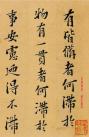 有皆備者何滯於
物有一貫者何滯於
事安得不滯